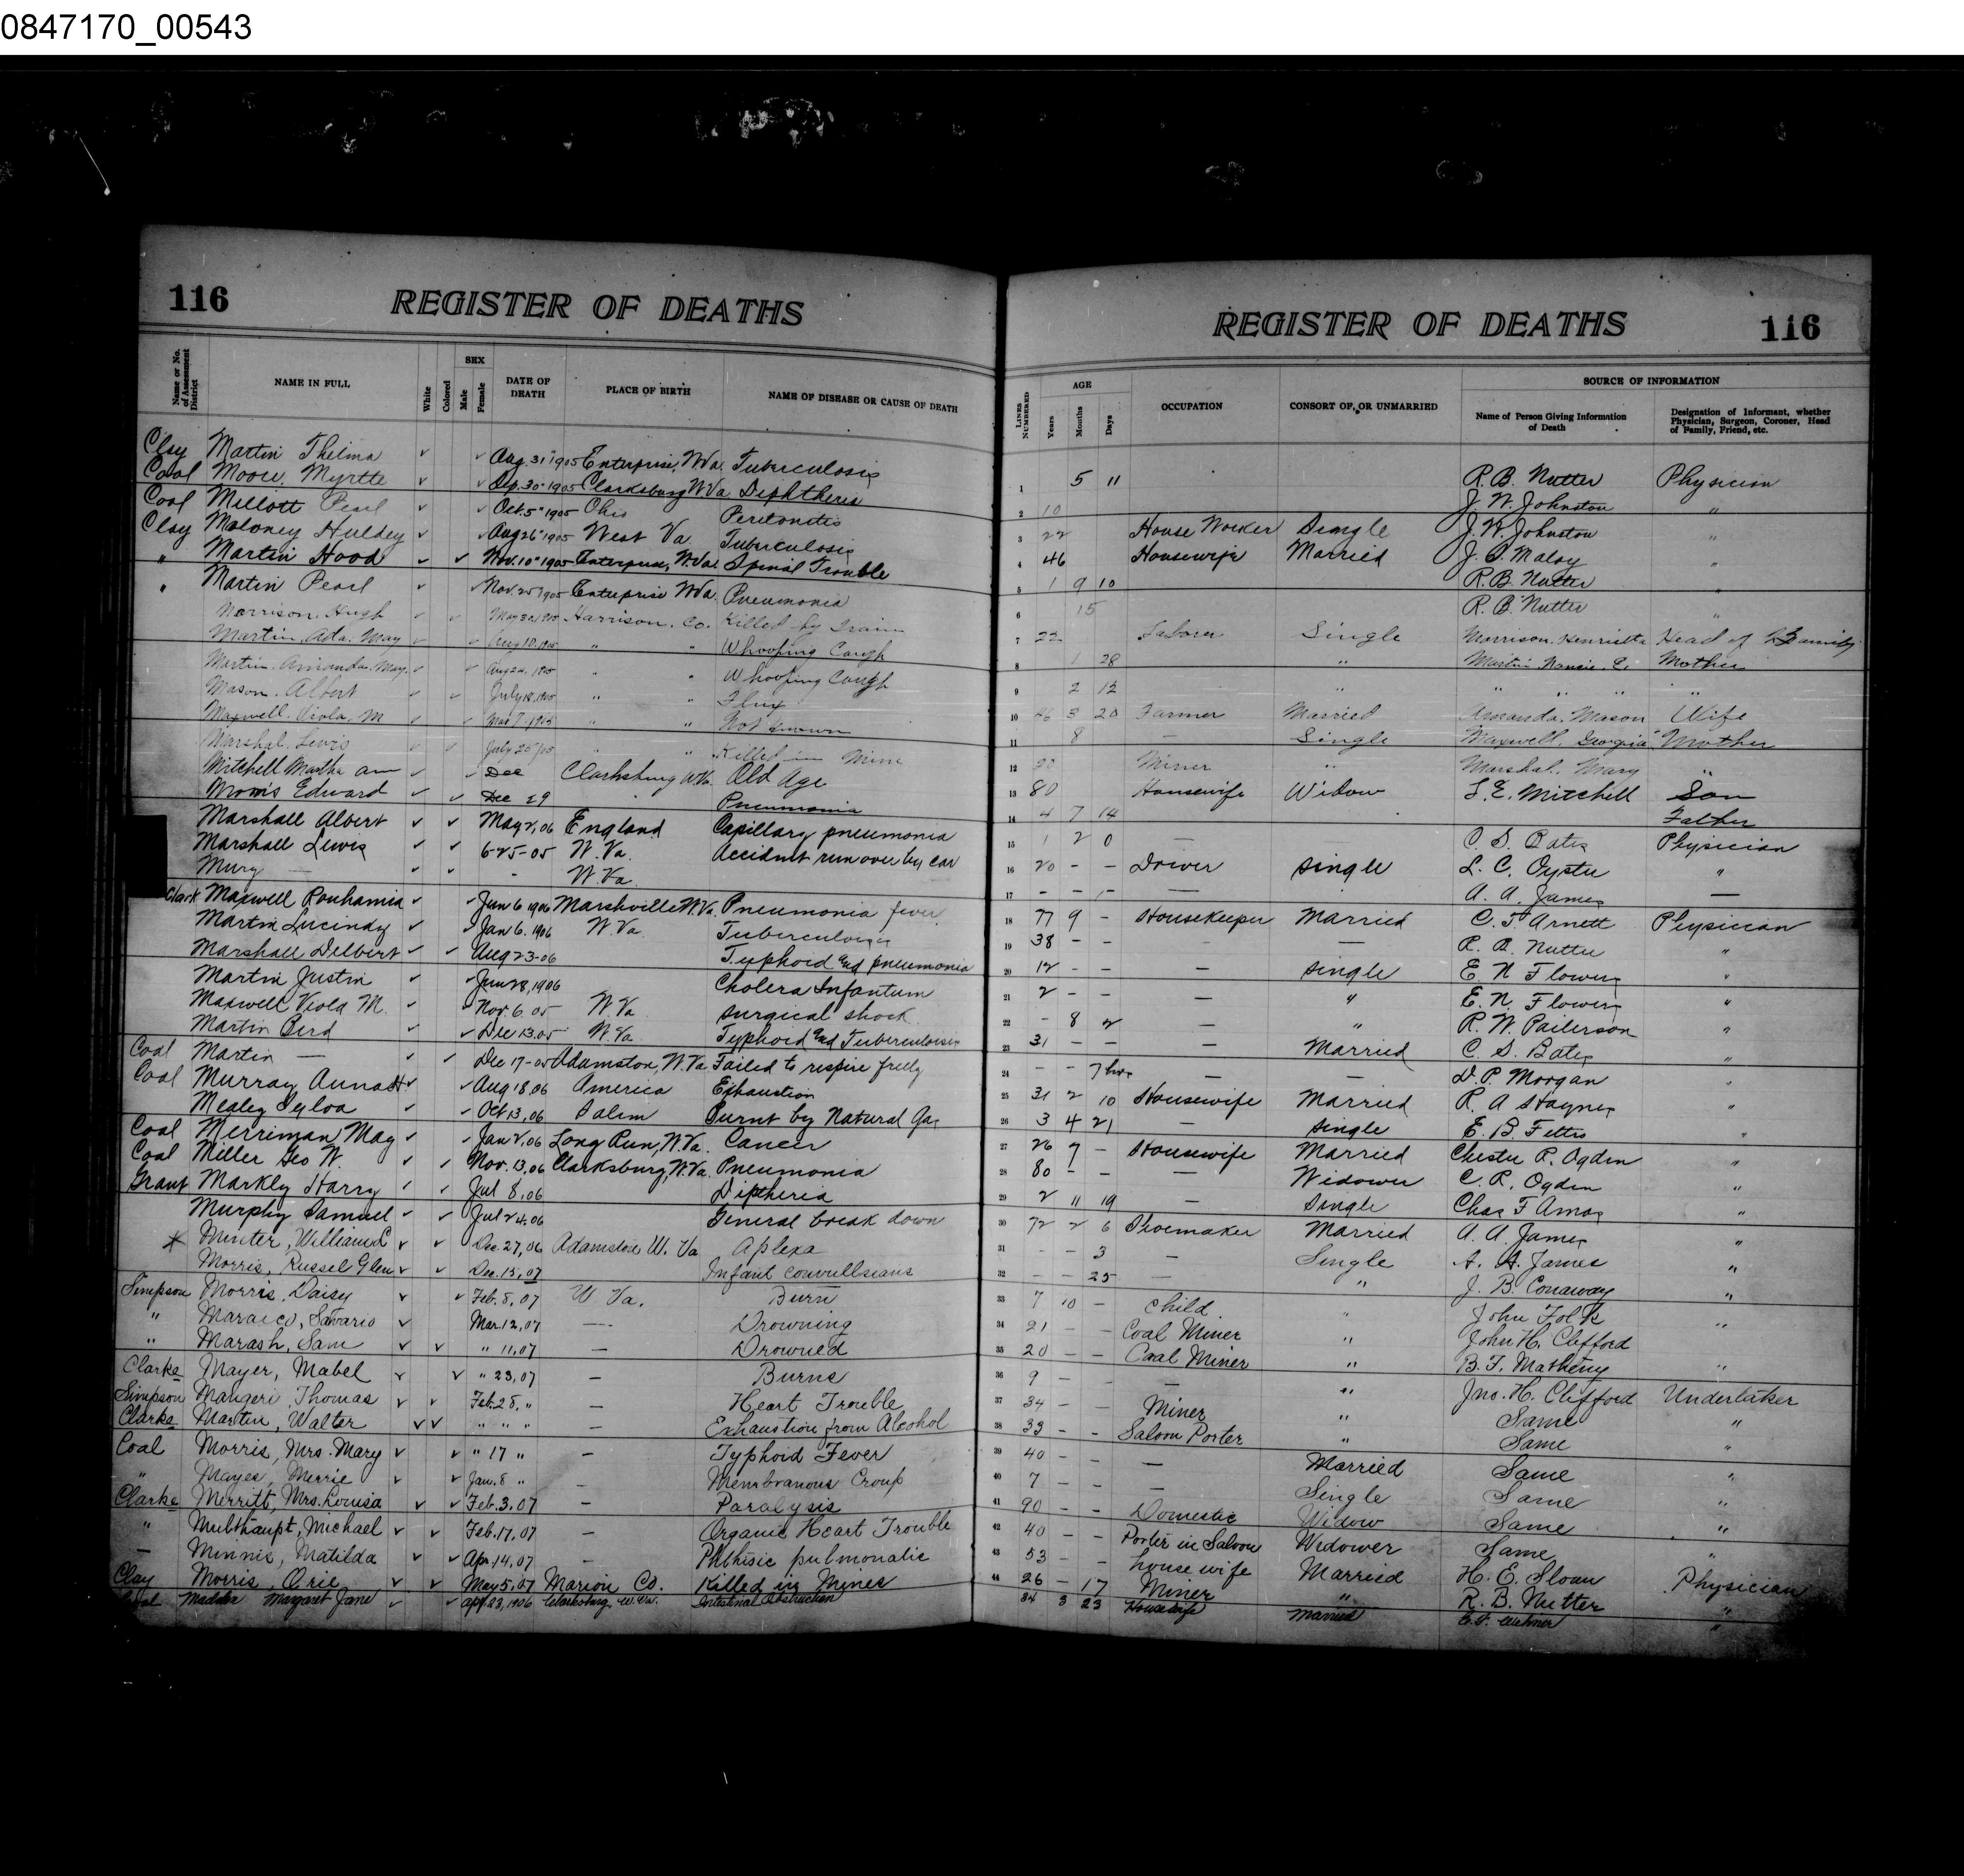 0847170_00543
116 REGISTER OF DEATHS
Name or No. of Assessment District NAME IN FULL White Colored SEX Male Female DATE OF DEATH PLACE OF BIRTH NAME OF DISEASE OR CAUSE OF DEATH
Clay Martin Thelma ✓ ✓ Aug. 31" 1905 Enterprise, W.Va. Tuberculosis
Coal Moore, Myrtle ✓ ✓ Sep. 30" 1905 Clarksburg W.Va Diphtheria
Coal Millott Pearl ✓ ✓ Oct. 5" 1905 Ohio Peritonitis
Clay Maloney Huldey ✓ ✓ Aug 26" 1905 West Va. Tuberculosis
" Martin Hood ✓ ✓ Nov. 10" 1905 Enterprise, W.Va. Spinal Trouble
" Martin Pearl ✓ ✓ Nov. 25" 1905 Enterprise W.Va. Pneumonia
Morrison, Hugh ✓ ✓ May 30, 1905 Harrison. Co. Killed by train
Martin, Ada. May ✓ ✓ Aug 10, 1905 " " Whooping Cough
Martin. Amanda. May. ✓ ✓ Aug 24, 1905 " " Whooping Cough
Mason. Albert ✓ ✓ July 18, 1905 " " Flux
Maxwell. Viola. M ✓ ✓ Mar 7, 1905 " " Not known
Marshal. Lewis ✓ ✓ July 25/05 " " Killed in Mine
Mitchell Martha ann ✓ ✓ Dec Clarksburg W.Va. Old Age
Morris Edward ✓ ✓ Dec 29 Pneumonia
Marshall Albert ✓ ✓ May 2, 06 England Capillary pneumonia
Marshall Lewis ✓ ✓ 6-25-05 W. Va. Accident run over by car
Mury — ✓ ✓ - W. Va.
Clark Maxwell Rouhamia ✓ ✓ Jun 6 1906 Marshville W.Va. Pneumonia fever
Martin Lucindy ✓ ✓ Jan 6. 1906 W. Va. Tuberculosis
Marshall Delbert ✓ ✓ Aug 23-06 Typhoid and pneumonia
Martin Justin ✓ ✓ Jun 28, 1906 Cholera Infantum
Maxwell Viola M. ✓ ✓ Nov. 6. 05 W. Va. surgical shock
Martin Bird ✓ ✓ Dec 13. 05 W. Va. Typhoid and Tuberculosis
Coal Martin — ✓ ✓ Dec 17-05 Adamston, W.Va. Failed to respire freely
Coal Murray Anna H. ✓ ✓ Aug 18, 06 America Exhaustion
Mealey ✓ ✓ Oct 13, 06 Salem Burnt by Natural Gas
Coal Merriman, May ✓ ✓ Jan 2, 06 Long Run, W.Va. Cancer
Coal Miller Geo W. ✓ ✓ Nov. 13, 06 Clarksburg, W.Va. Pneumonia
Grant Markly Harry ✓ ✓ Jul 8, 06 Diptheria
Murphy Samuel ✓ ✓ Jul 24. 06 General break down
* Minter, William L ✓ ✓ Dec. 27, 06 Adamston W. Va Aplexa
Morris, Russel Glen ✓ ✓ Dec. 15, 07 Infant convullsians
Simpson Morris, Daisy ✓ ✓ Feb. 8, 07 W Va. Burn
" Maraico, Savario ✓ Mar. 12, 07 — Drowning
" Marash, Sam ✓ ✓ " 11, 07 — Drowned
Clarke Mayer, Mabel ✓ ✓ " 23, 07 — Burns
Simpson Mangeri, Thomas ✓ ✓ Feb. 28, " — Heart Trouble
Clarke Martin, Walter ✓ ✓ " " " — Exhaustion from Alcohol
Coal Morris, Mrs. Mary ✓ ✓ " 17 " — Typhoid Fever
" Mayes, Merrie ✓ ✓ Jan. 8 " — Membranous Croup
Clarke Merritt, Mrs. Louisa ✓ ✓ Feb. 3, 07 — Paralysis
" Multhaupt, Michael ✓ ✓ Feb. 17, 07 — Organic Heart Trouble
— Minnis, Matilda ✓ ✓ Apr. 14, 07 — Phthisic pulmonatic
Clay Morris, Orie ✓ ✓ May 5, 07 Marion Co. Killed in Mines
Coal Madden Margaret Jane ✓ ✓ Apr 23, 1906 Clarksburg W.Va. Intestinal Obstruction
REGISTER OF DEATHS 116
LINES NUMBERED AGE Years Months Days OCCUPATION CONSORT OF, OR UNMARRIED SOURCE OF INFORMATION Name of Person Giving Information of Death Designation of Informant, whether Physician, Surgeon, Coroner, Head of Family, Friend, etc.
1 5 11 R. B. Nutter Physician
2 10 J. W. Johnston "
3 22 House Worker Single J. W. Johnston "
4 46 Housewife Married J. S. Maloy "
5 1 9 10 R. B. Nutter
6 15 R. B. Nutter "
7 22 Laborer Single Morrison, Henrietta Head of Family
8 1 28 " Martin Nancie. E. Mother
9 2 12 " " " " "
10 46 3 20 Farmer Married Amanda. Mason Wife
11 8 — Single Maxwell, Georgia Mother
12 20 Miner " Marshal. Mary "
13 80 Housewife Widow L. E. Mitchell Son
14 4 7 14 Father
15 1 2 0 — C. S. Bates Physician
16 20 - - Driver single L. C. Oyster "
17 - - - — A. A. James —
18 77 9 - Housekeeper Married C. T. Arnett Physician
19 38 - - - — R. B. Nutter "
20 12 - - - single E. N Flowers "
21 2 - - — " E. N. Flowers "
22 - 8 2 — " R. W. Patterson "
23 31 - - — Married C. S. Bates "
24 - - 7 hrs — — D. P. Morgan "
25 31 2 10 Housewife Married R. A Haynes "
26 3 4 21 — single E. B. Fittro "
27 26 7 - Housewife Married Chester R. Ogden "
28 80 - - — Widower C. R. Ogden "
29 2 11 19 — single Chas F Amos "
30 72 2 6 Shoemaker Married A. A. James "
31 - - 3 — Single A. A. James "
32 - - 25 — " J. B. Conaway "
33 7 10 - child " John Folk "
34 21 - - Coal Miner " John H. Clifford
35 20 - - Coal Miner " B. F. Matheny "
36 9 - - — " Jno. H. Clifford Undertaker
37 34 - - Miner " Same "
38 33 - - Saloon Porter " Same "
39 40 - - — Married Same "
40 7 - - — Single Same "
41 90 - - Domestic Widow Same "
42 40 - - Porter in Saloon Widower Same "
43 53 - - house wife Married H. E. Sloan Physician
44 26 - 17 Miner " R. B. Nutter "
34 3 23 Housewife Married "